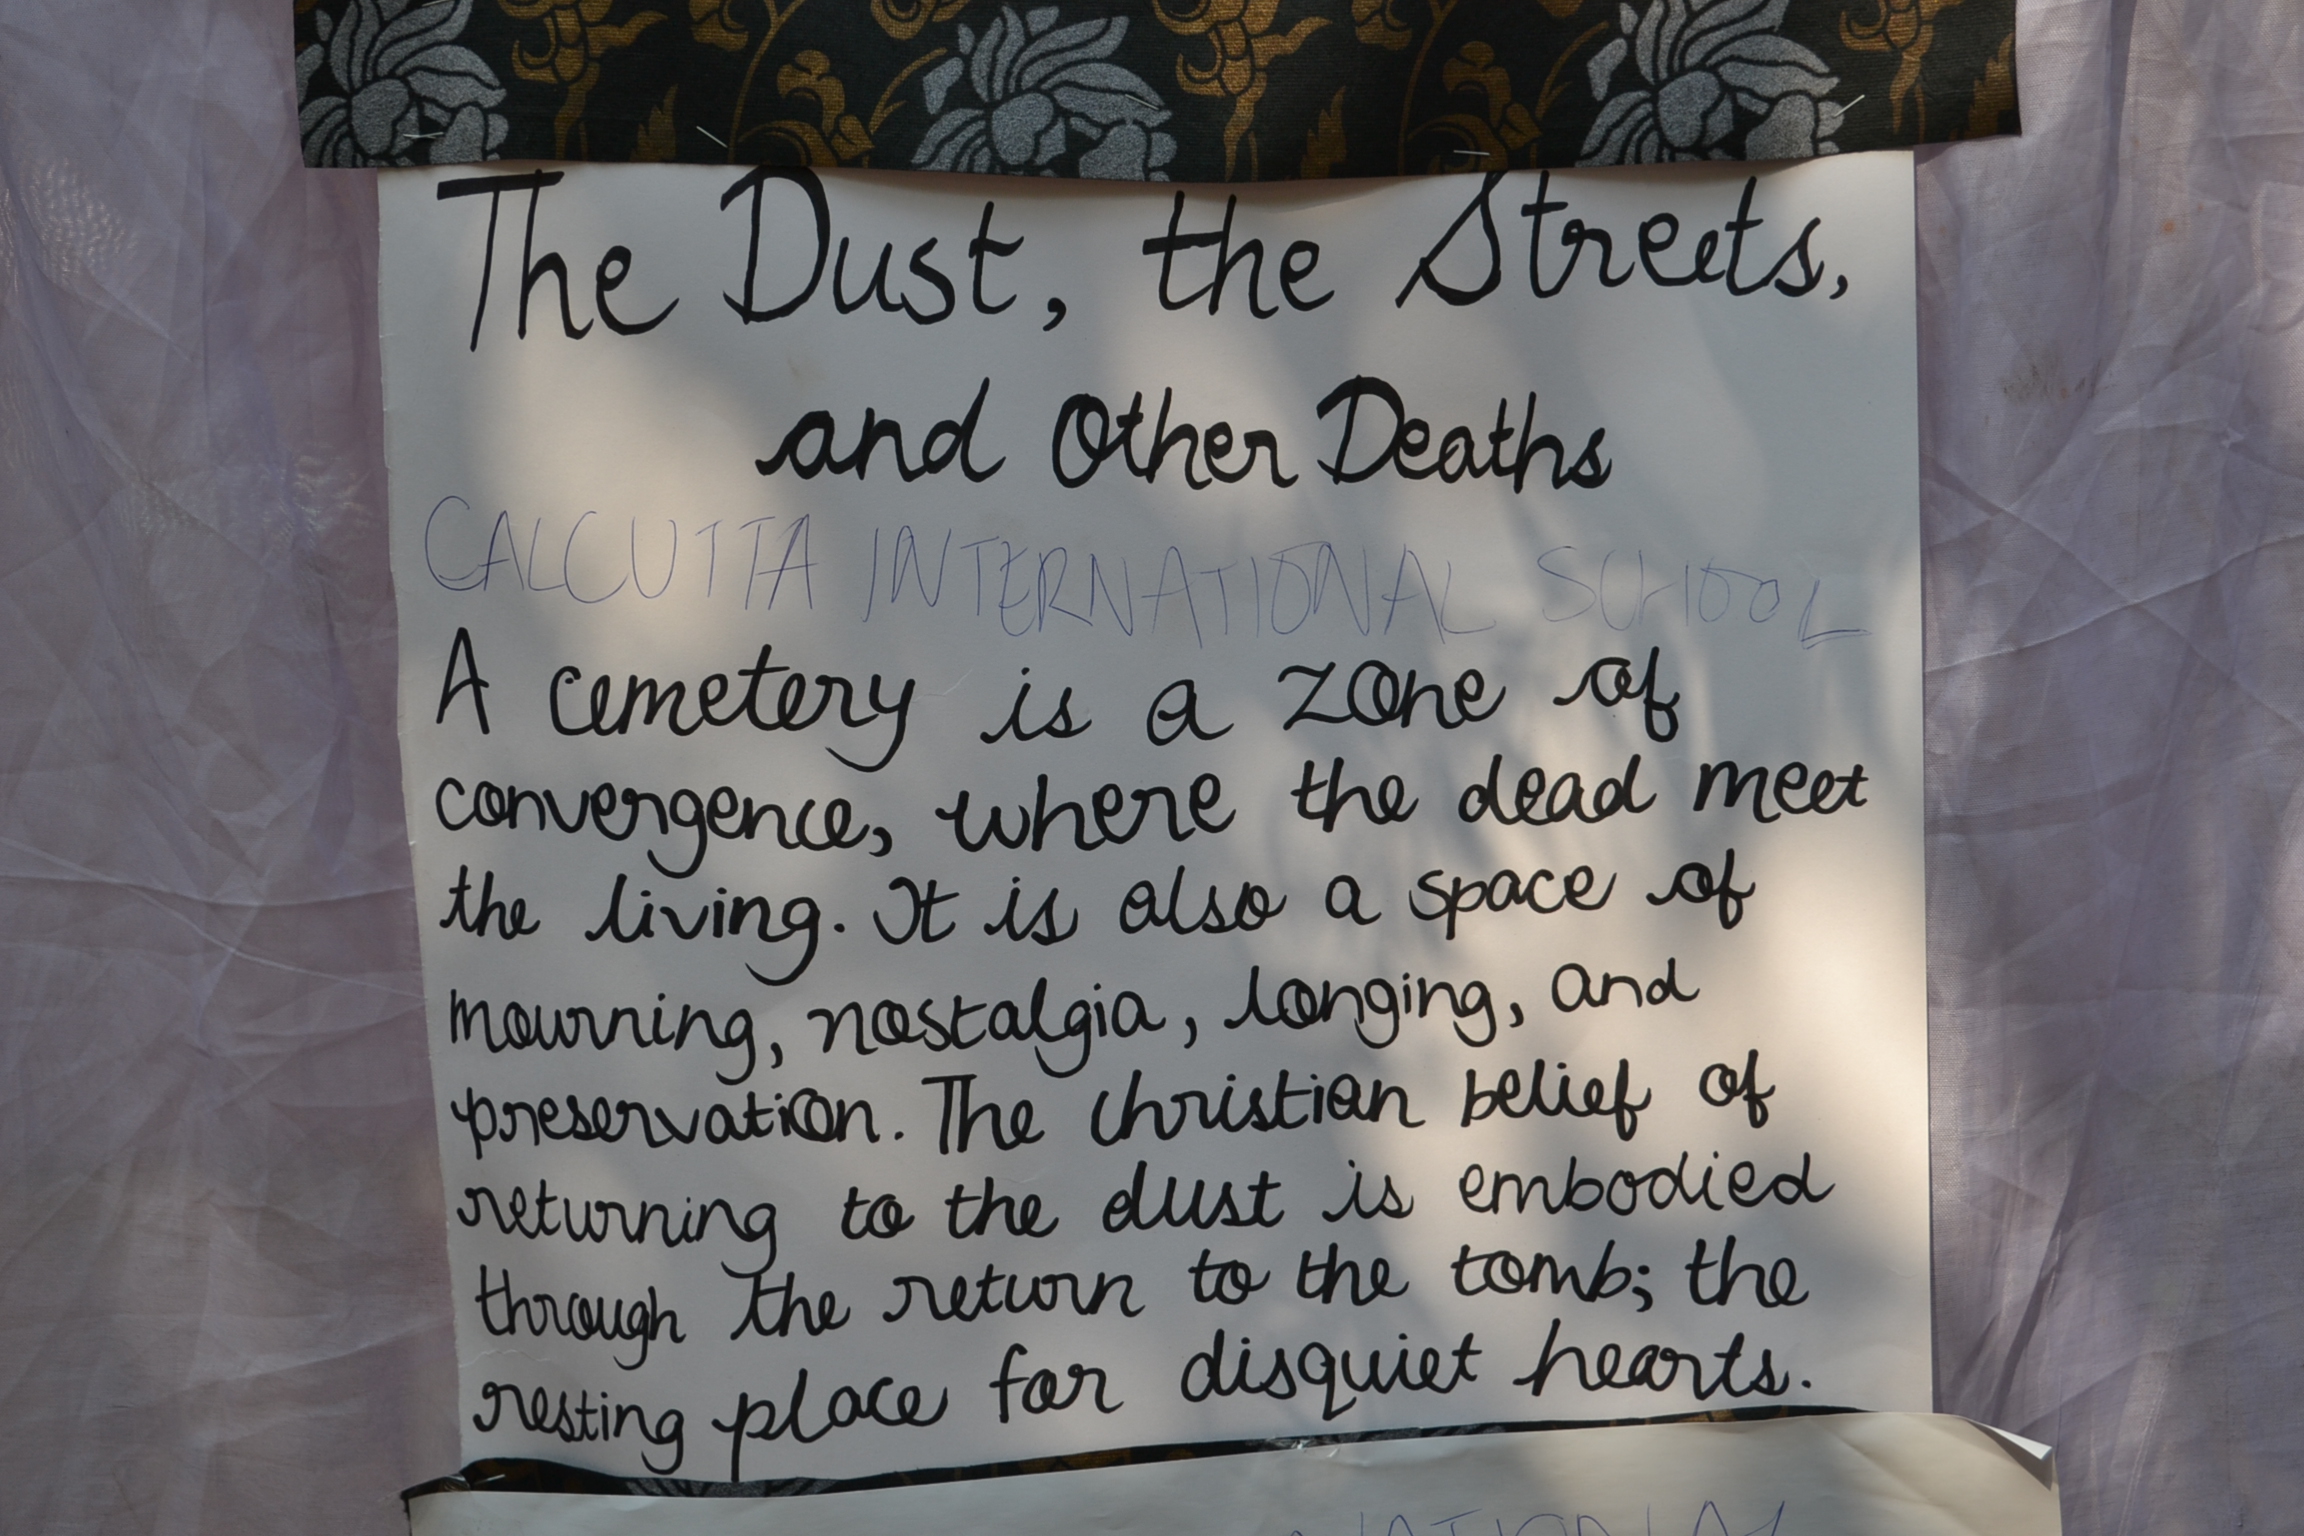 The Dust, the Streets,
and Other Deaths
CALCUTTA INTERNATIONAL SCHOOL
A cemetery is a zone of
convergence, where the dead meet
the living. It is also a space of
mourning, nostalgia, longing, and
preservation. The christian belief of
returning to the dust is embodied
through the return to the tomb; the
resting place for disquiet hearts.